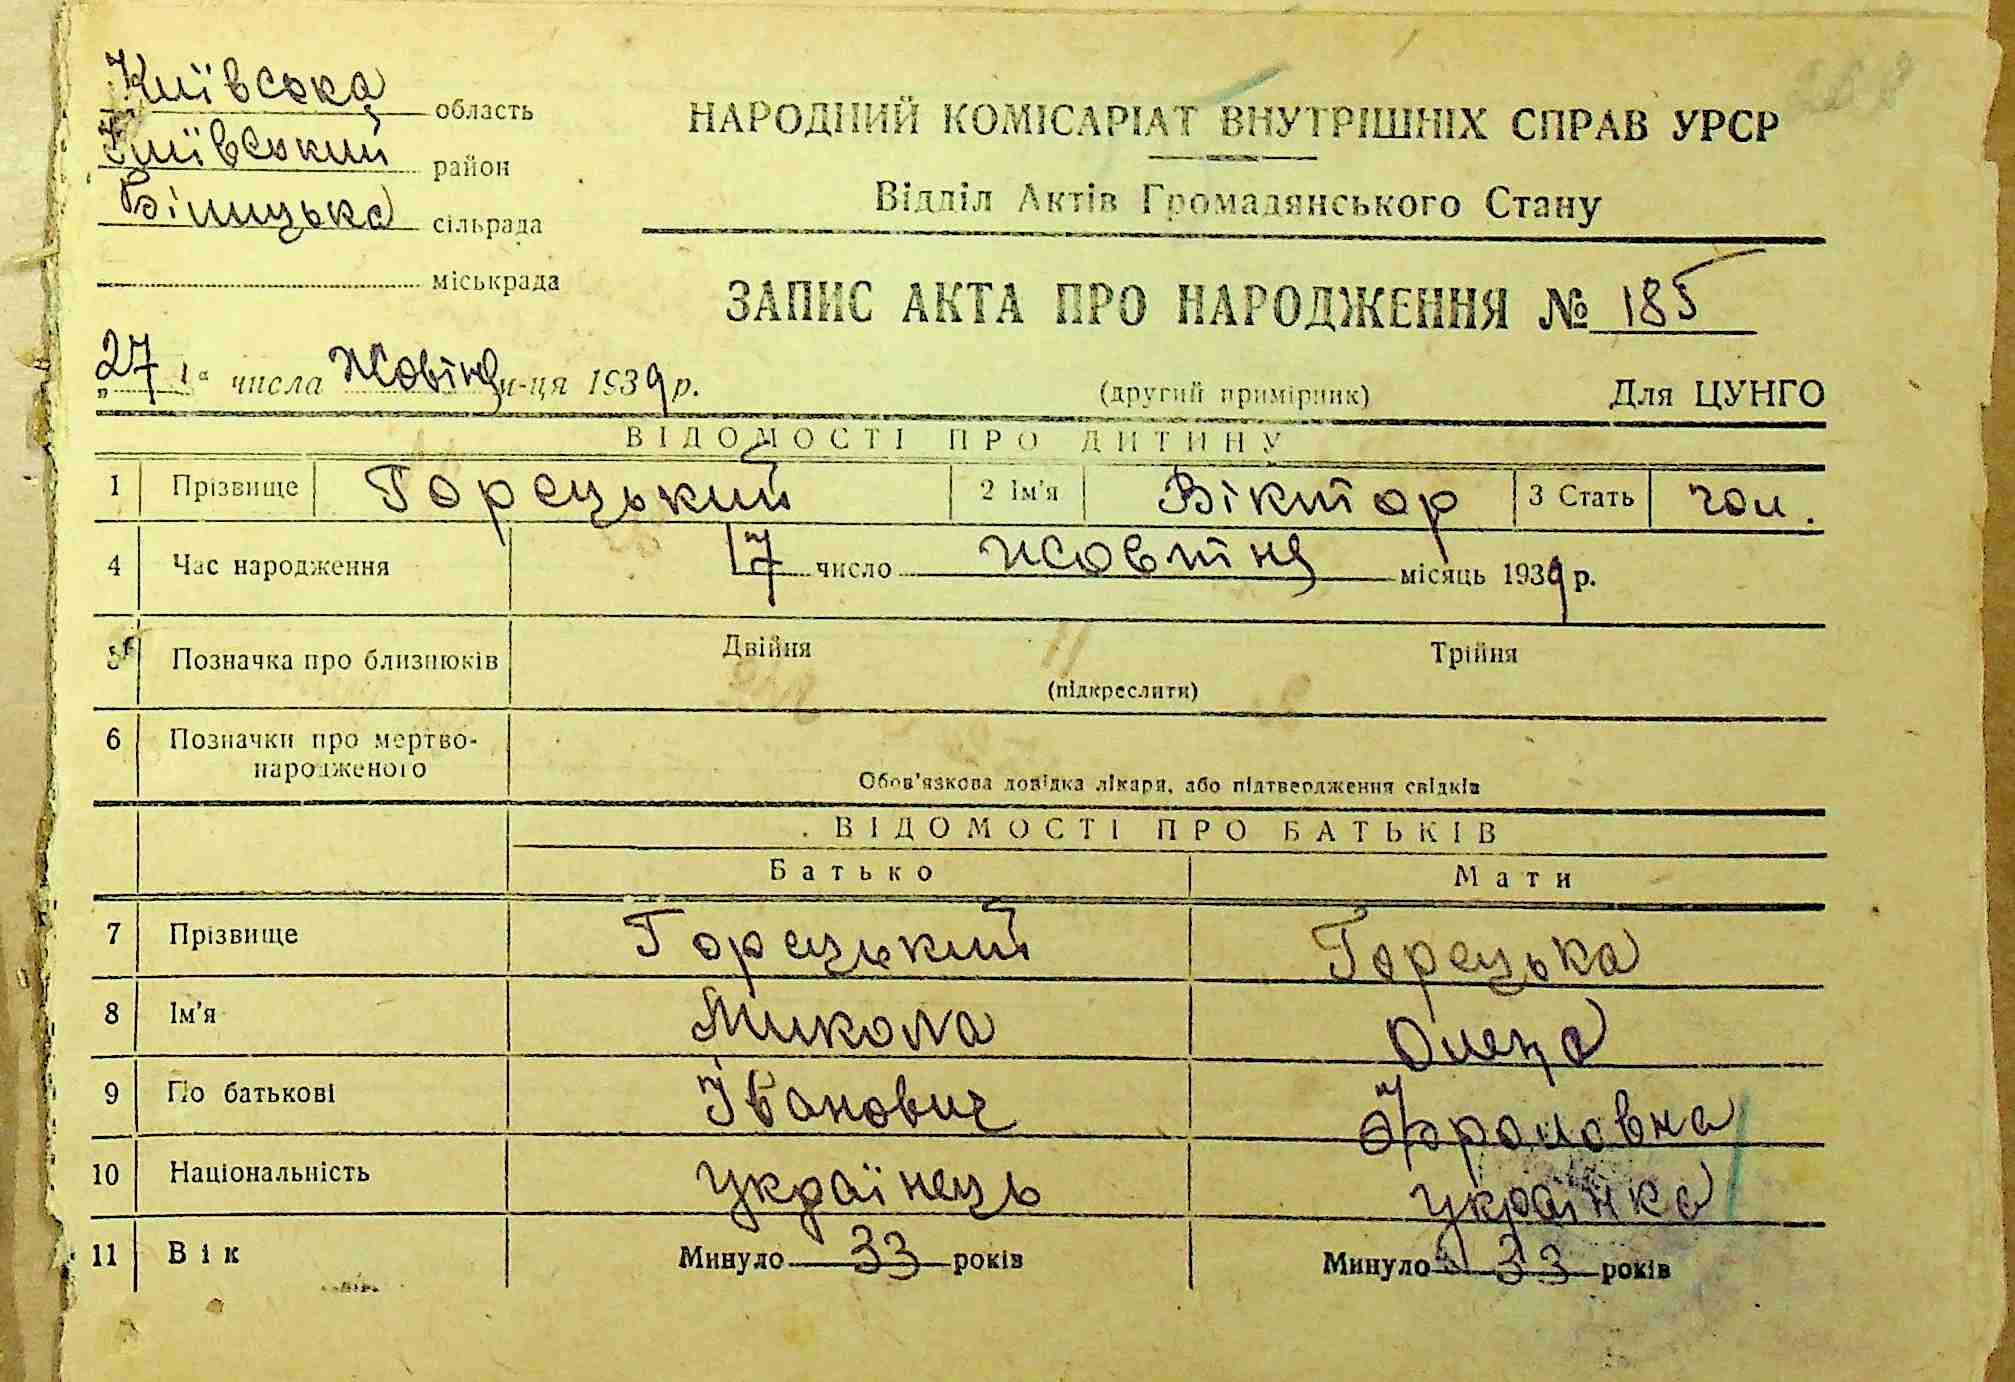 Київська область
Київський район
Білицька сільрада
міськрада
НАРОДНИЙ КОМІСАРІАТ ВНУТРІШНІХ СПРАВ УРСР
Відділ Актів Громадянського Стану
ЗАПИС АКТА ПРО НАРОДЖЕННЯ № 185
„27“ числа Жовтня м-ця 1939 р. (другий примірник) Для ЦУНГО
ВІДОМОСТІ ПРО ДИТИНУ
1 Прізвище Горецький 2 Ім'я Віктор 3 Стать чол.
4 Час народження 17 число жовтня місяць 1939 р.
5 Позначка про близнюків Двійня Трійня
(підкреслити)
6 Позначки про мертво-
народженого
Обов'язкова довідка лікаря, або підтвердження свідків
ВІДОМОСТІ ПРО БАТЬКІВ
Батько Мати
7 Прізвище Горецький Горецька
8 Ім'я Микола
9 По батькові Іванович
10 Національність українець українка
11 Вік Минуло 33 років Минуло 33 років